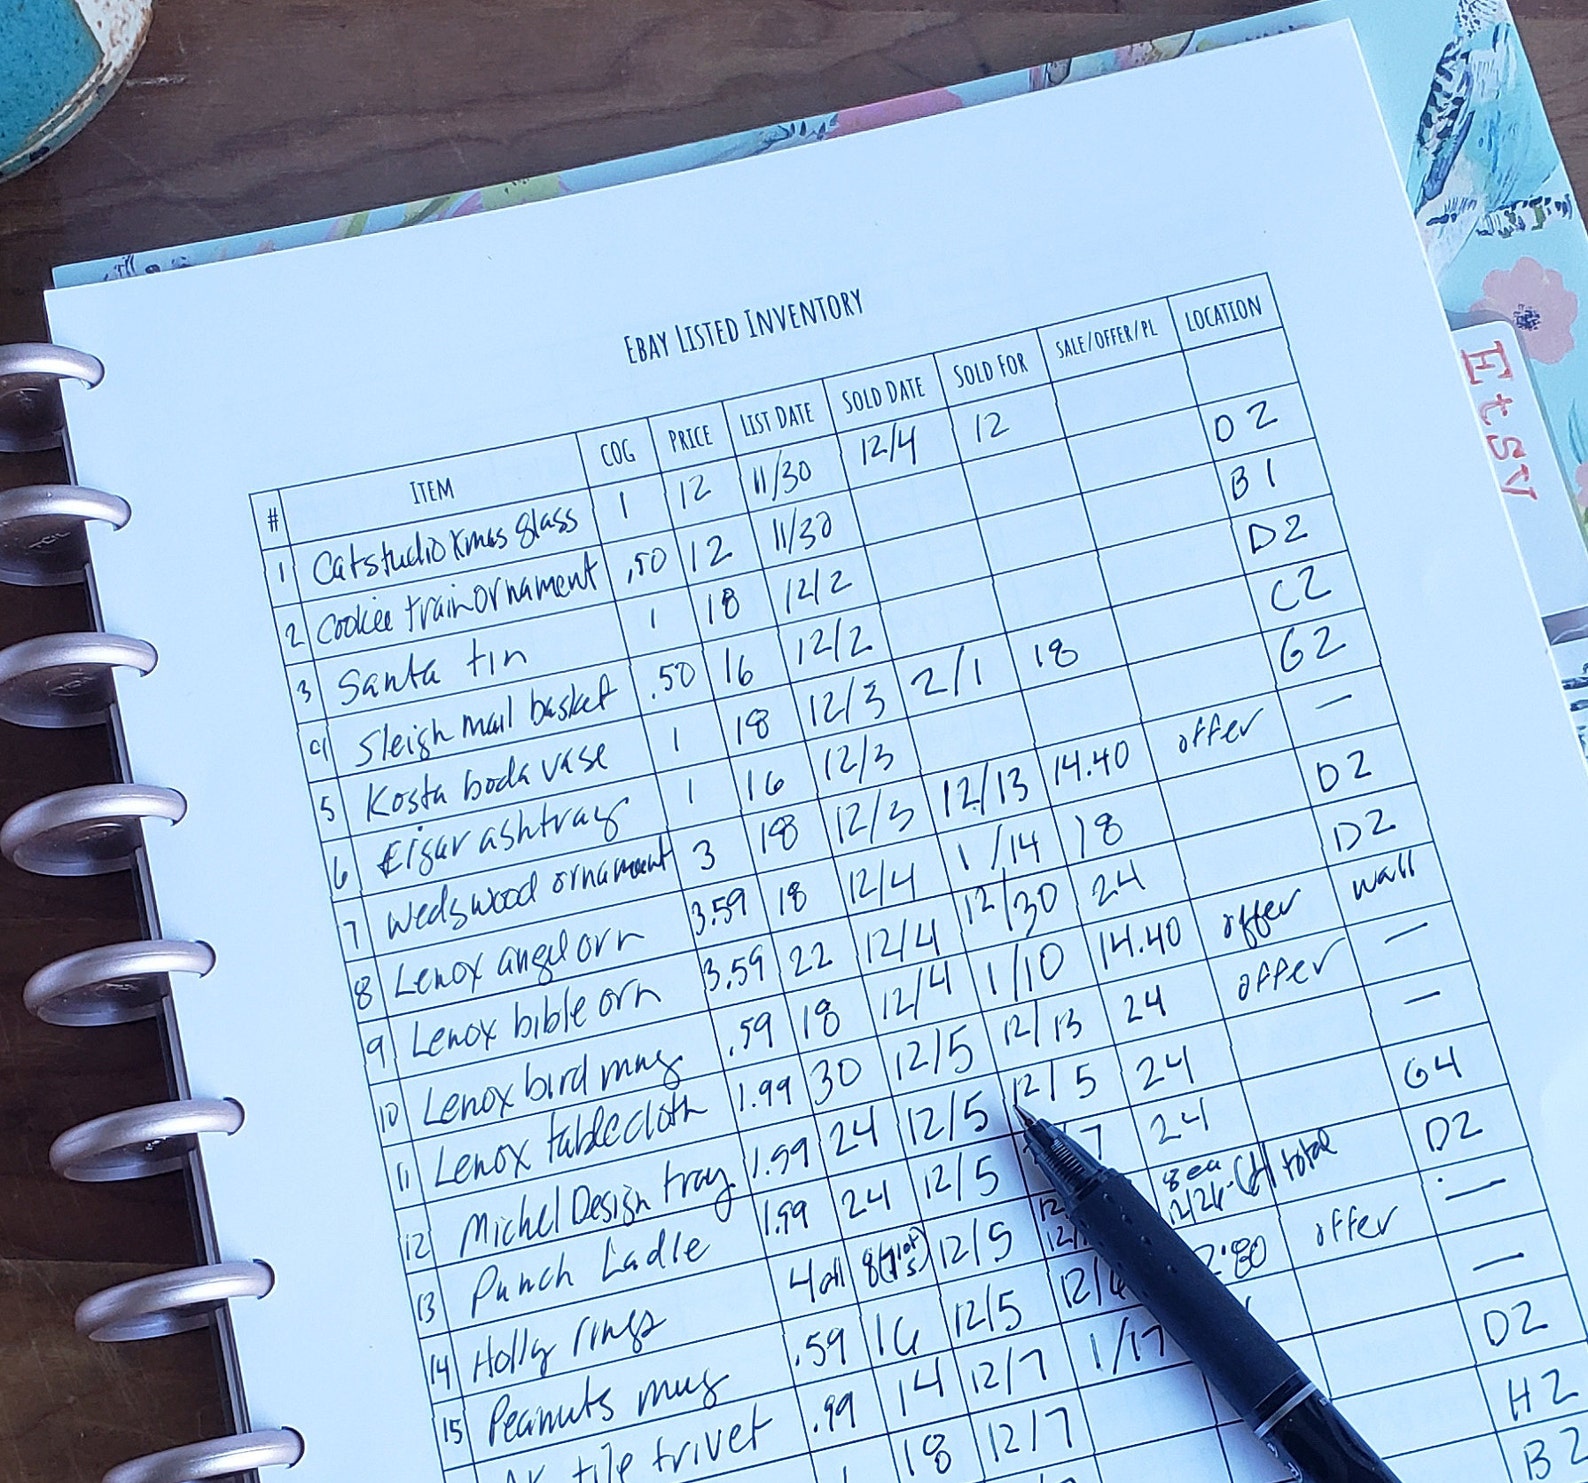 Etsy
EBAY LISTED INVENTORY
# ITEM COG PRICE LIST DATE SOLD DATE SOLD FOR SALE/OFFER/PL LOCATION
1 Catstudio Xmas glass 1 12 11/30 12/4 12
2 Cookie train ornament .50 12 11/30 D2
3 Santa tin 1 18 12/2 B1
4 Sleigh mail basket .50 16 12/2 D2
5 Kosta boda vase 1 18 12/3 2/1 18 C2
6 ashtray 1 16 12/3 G2
7 Wedgwood ornament 3 18 12/3 12/13 14.40 offer —
8 Lenox angel orn 3.59 18 12/4 1/14 18 D2
9 Lenox bible orn 3.59 22 12/4 12/30 24 D2
10 Lenox bird mug .59 18 12/4 1/10 14.40 offer wall
11 Lenox tablecloth 1.99 30 12/5 12/13 24 offer —
12 Michel Design tray 1.99 24 12/5 12/5 24 —
13 Punch Ladle 1.99 24 12/5 24 G4
14 Holly rings 4 all 12/5 8 ea total D2
15 Peanuts mug .59 16 12/5 offer —
tile trivet .99 14 12/7 1/17 —
18 12/7 D2
H2
B2